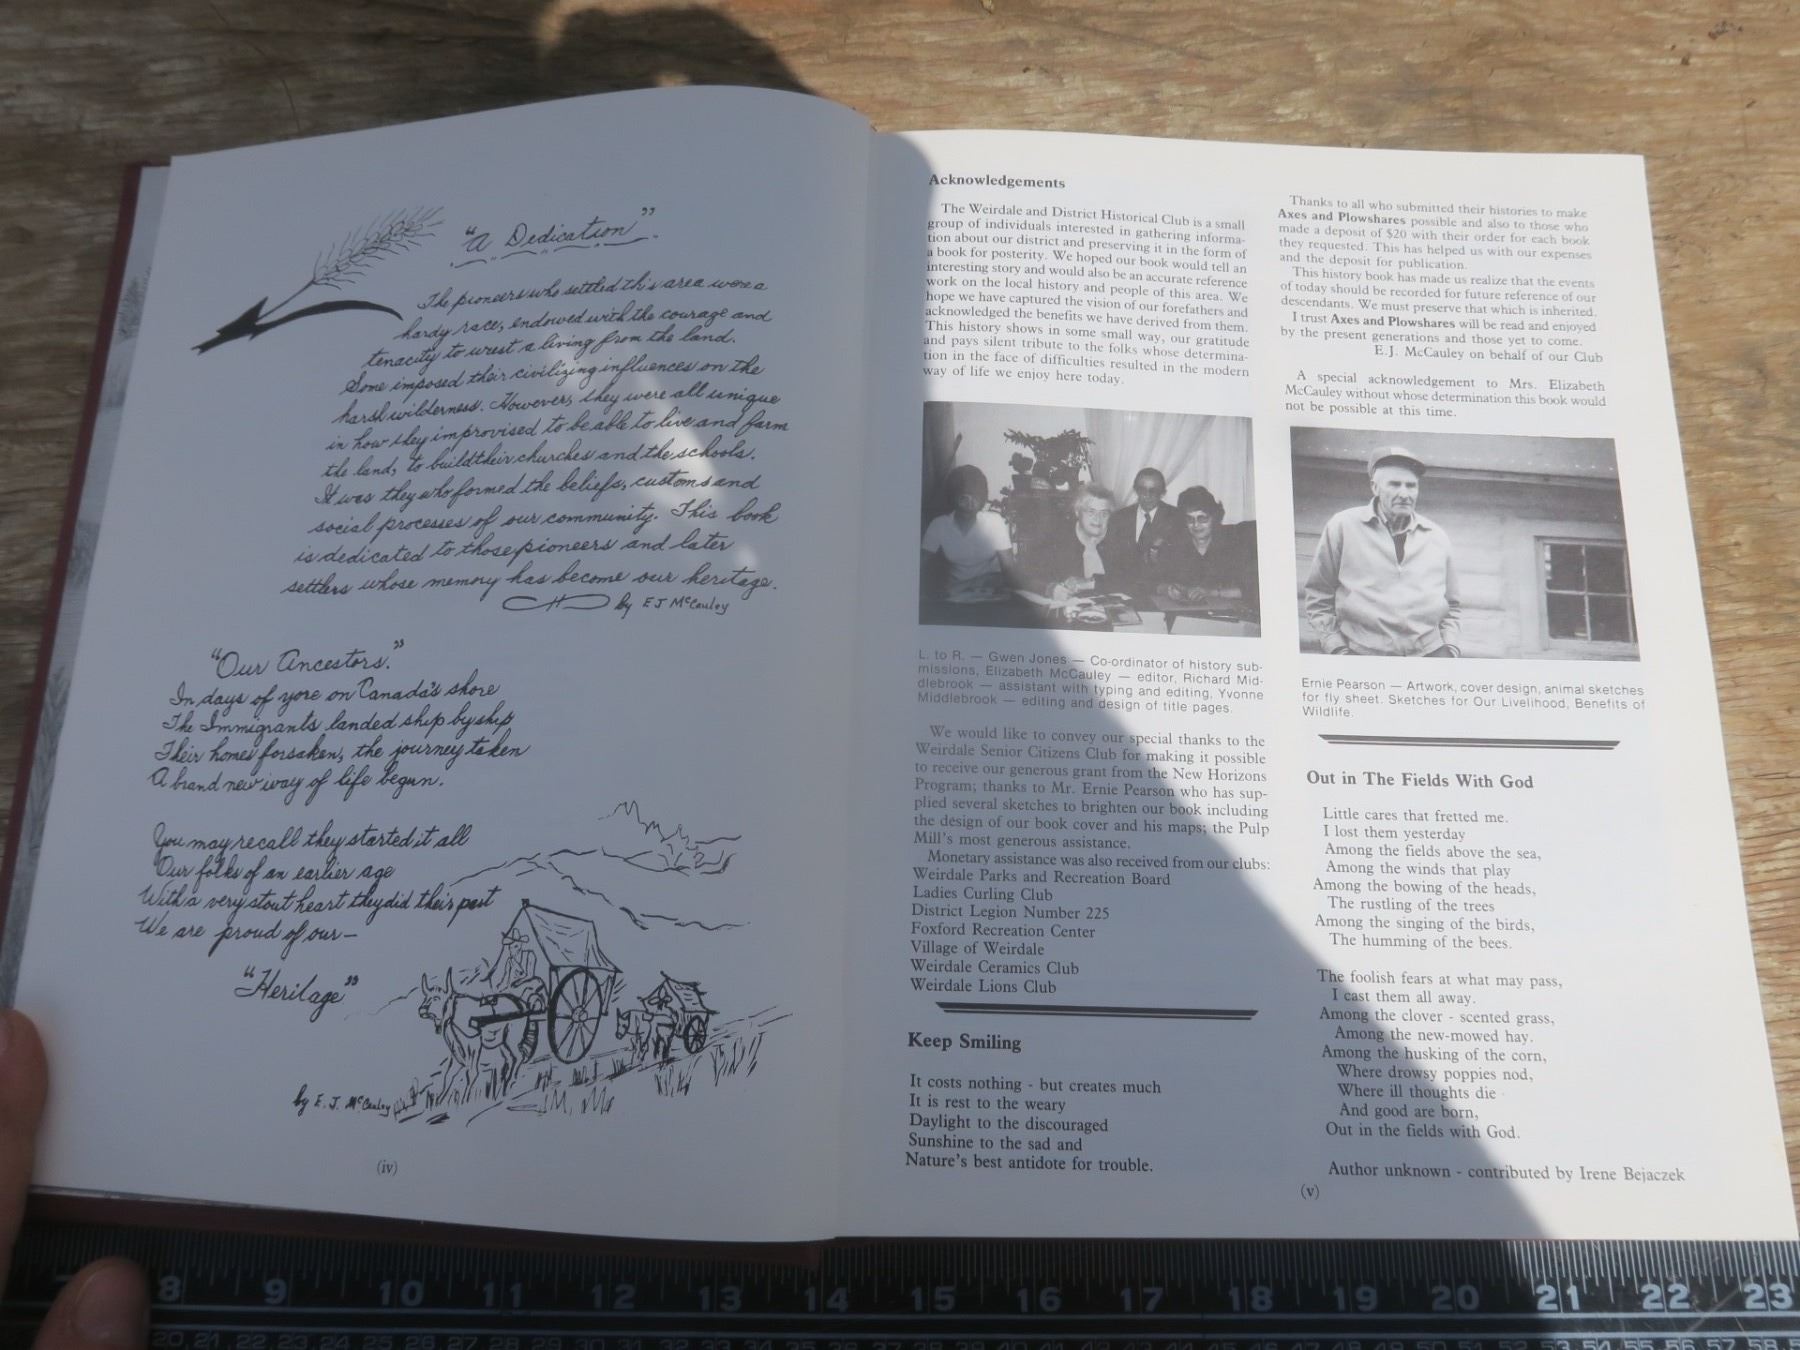 "A Dedication"
The pioneers who settled this area were a
hardy race, endowed with the courage and
tenacity to wrest a living from the land.
Some imposed their civilizing influences on the
harsh wilderness. However, they were all unique
in how they improvised to be able to live and farm
the land, to build their churches and the schools.
It was they who formed the beliefs, customs and
social processes of our community. This book
is dedicated to those pioneers and later
settlers whose memory has become our heritage.
by E J McCauley
"Our Ancestors."
In days of yore on Canada's shore
The Immigrants landed ship by ship
Their homes forsaken, the journey taken
A brand new way of life begun.
You may recall they started it all
Our folks of an earlier age
With a very stout heart they did their part
We are proud of our—
"Heritage"
by E. J. McCauley
(iv)
Acknowledgements
The Weirdale and District Historical Club is a small
group of individuals interested in gathering informa-
tion about our district and preserving it in the form of
a book for posterity. We hoped our book would tell an
interesting story and would also be an accurate reference
work on the local history and people of this area. We
hope we have captured the vision of our forefathers and
acknowledged the benefits we have derived from them.
This history shows in some small way, our gratitude
and pays silent tribute to the folks whose determina-
tion in the face of difficulties resulted in the modern
way of life we enjoy here today.
L. to R. — Gwen Jones — Co-ordinator of history sub-
missions, Elizabeth McCauley — editor, Richard Mid-
dlebrook — assistant with typing and editing, Yvonne
Middlebrook — editing and design of title pages.
We would like to convey our special thanks to the
Weirdale Senior Citizens Club for making it possible
to receive our generous grant from the New Horizons
Program; thanks to Mr. Ernie Pearson who has sup-
plied several sketches to brighten our book including
the design of our book cover and his maps; the Pulp
Mill's most generous assistance.
Monetary assistance was also received from our clubs:
Weirdale Parks and Recreation Board
Ladies Curling Club
District Legion Number 225
Foxford Recreation Center
Village of Weirdale
Weirdale Ceramics Club
Weirdale Lions Club
Keep Smiling
It costs nothing - but creates much
It is rest to the weary
Daylight to the discouraged
Sunshine to the sad and
Nature's best antidote for trouble.
Thanks to all who submitted their histories to make
Axes and Plowshares possible and also to those who
made a deposit of $20 with their order for each book
they requested. This has helped us with our expenses
and the deposit for publication.
This history book has made us realize that the events
of today should be recorded for future reference of our
descendants. We must preserve that which is inherited.
I trust Axes and Plowshares will be read and enjoyed
by the present generations and those yet to come.
E.J. McCauley on behalf of our Club
A special acknowledgement to Mrs. Elizabeth
McCauley without whose determination this book would
not be possible at this time.
Ernie Pearson — Artwork, cover design, animal sketches
for fly sheet. Sketches for Our Livelihood, Benefits of
Wildlife.
Out in The Fields With God
Little cares that fretted me.
I lost them yesterday
Among the fields above the sea,
Among the winds that play
Among the bowing of the heads,
The rustling of the trees
Among the singing of the birds,
The humming of the bees.
The foolish fears at what may pass,
I cast them all away.
Among the clover - scented grass,
Among the new-mowed hay.
Among the husking of the corn,
Where drowsy poppies nod,
Where ill thoughts die
And good are born,
Out in the fields with God.
Author unknown - contributed by Irene Bejaczek
(v)
8 9 10 11 12 13 14 15 16 17 18 19 20 21 22 23